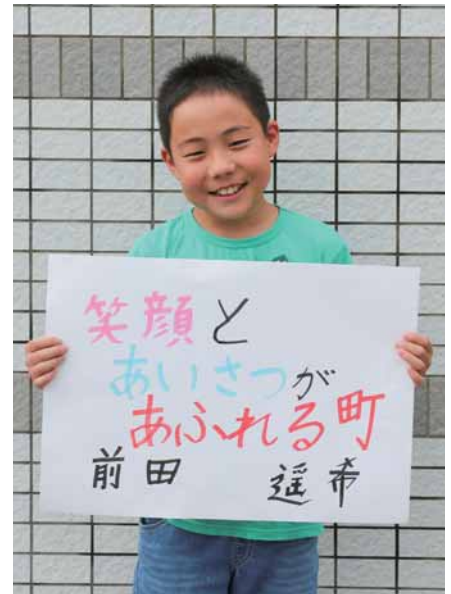 笑顔と
あいさつが
あふれる町
前田 遥希